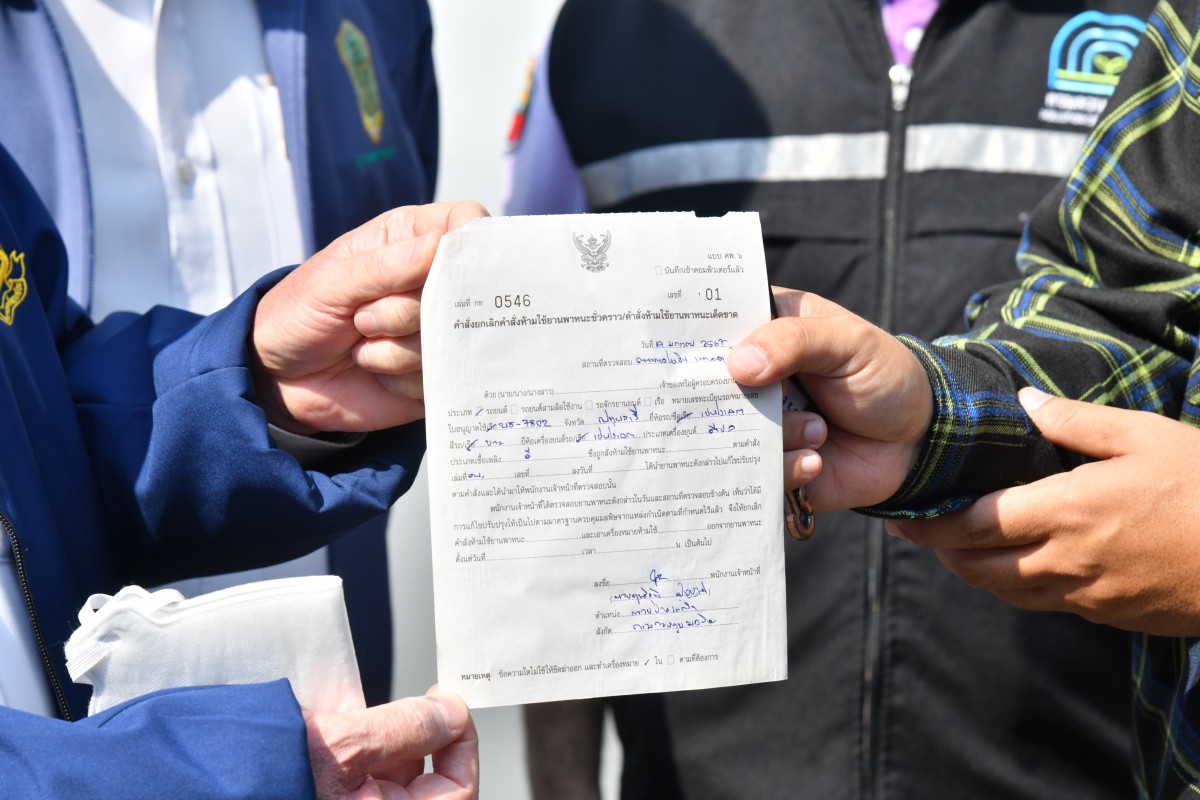 แบบ คพ. ๖
บันทึกเข้าคอมพิวเตอร์แล้ว
เล่มที่ กท 0546 เลขที่ 01
คำสั่งยกเลิกคำสั่งห้ามใช้ยานพาหนะชั่วคราว/คำสั่งห้ามใช้ยานพาหนะเด็ดขาด
วันที่ มกราคม 2567
สถานที่ตรวจสอบ
ด้วย (นาย/นาง/นางสาว) เจ้าของหรือผู้ครอบครองยาน
ประเภท รถยนต์ รถยนต์สามล้อใช้งาน รถจักรยานยนต์ เรือ หมายเลขทะเบียนรถ/หมายเลข
ใบอนุญาตใช้เรือ 7802 จังหวัด ยี่ห้อรถ/ชื่อเรือ
สีรถ/เรือ ยี่ห้อเครื่องยนต์รถ/เรือ ประเภทเครื่องยนต์ ดีเซล
ประเภทเชื้อเพลิง ซึ่งถูกสั่งห้ามใช้ยานพาหนะ ตามคำสั่ง
เล่มที่ คพ. เลขที่ ลงวันที่ ได้นำยานพาหนะดังกล่าวไปแก้ไขปรับปรุง
ตามคำสั่งและได้นำมาให้พนักงานเจ้าหน้าที่ตรวจสอบนั้น
พนักงานเจ้าหน้าที่ได้ตรวจสอบยานพาหนะดังกล่าวในวันและสถานที่ตรวจสอบข้างต้น เห็นว่าได้มี
การแก้ไขปรับปรุงให้เป็นไปตามมาตรฐานควบคุมมลพิษจากแหล่งกำเนิดตามที่กำหนดไว้แล้ว จึงให้ยกเลิก
คำสั่งห้ามใช้ยานพาหนะ และเอาเครื่องหมายห้ามใช้ ออกจากยานพาหนะ
ตั้งแต่วันที่ เวลา น. เป็นต้นไป
ลงชื่อ พนักงานเจ้าหน้าที่
ตำแหน่ง
สังกัด กรมควบคุมมลพิษ
หมายเหตุ ข้อความใดไม่ใช้ให้ขีดฆ่าออก และทำเครื่องหมาย ✓ ใน ตามที่ต้องการ